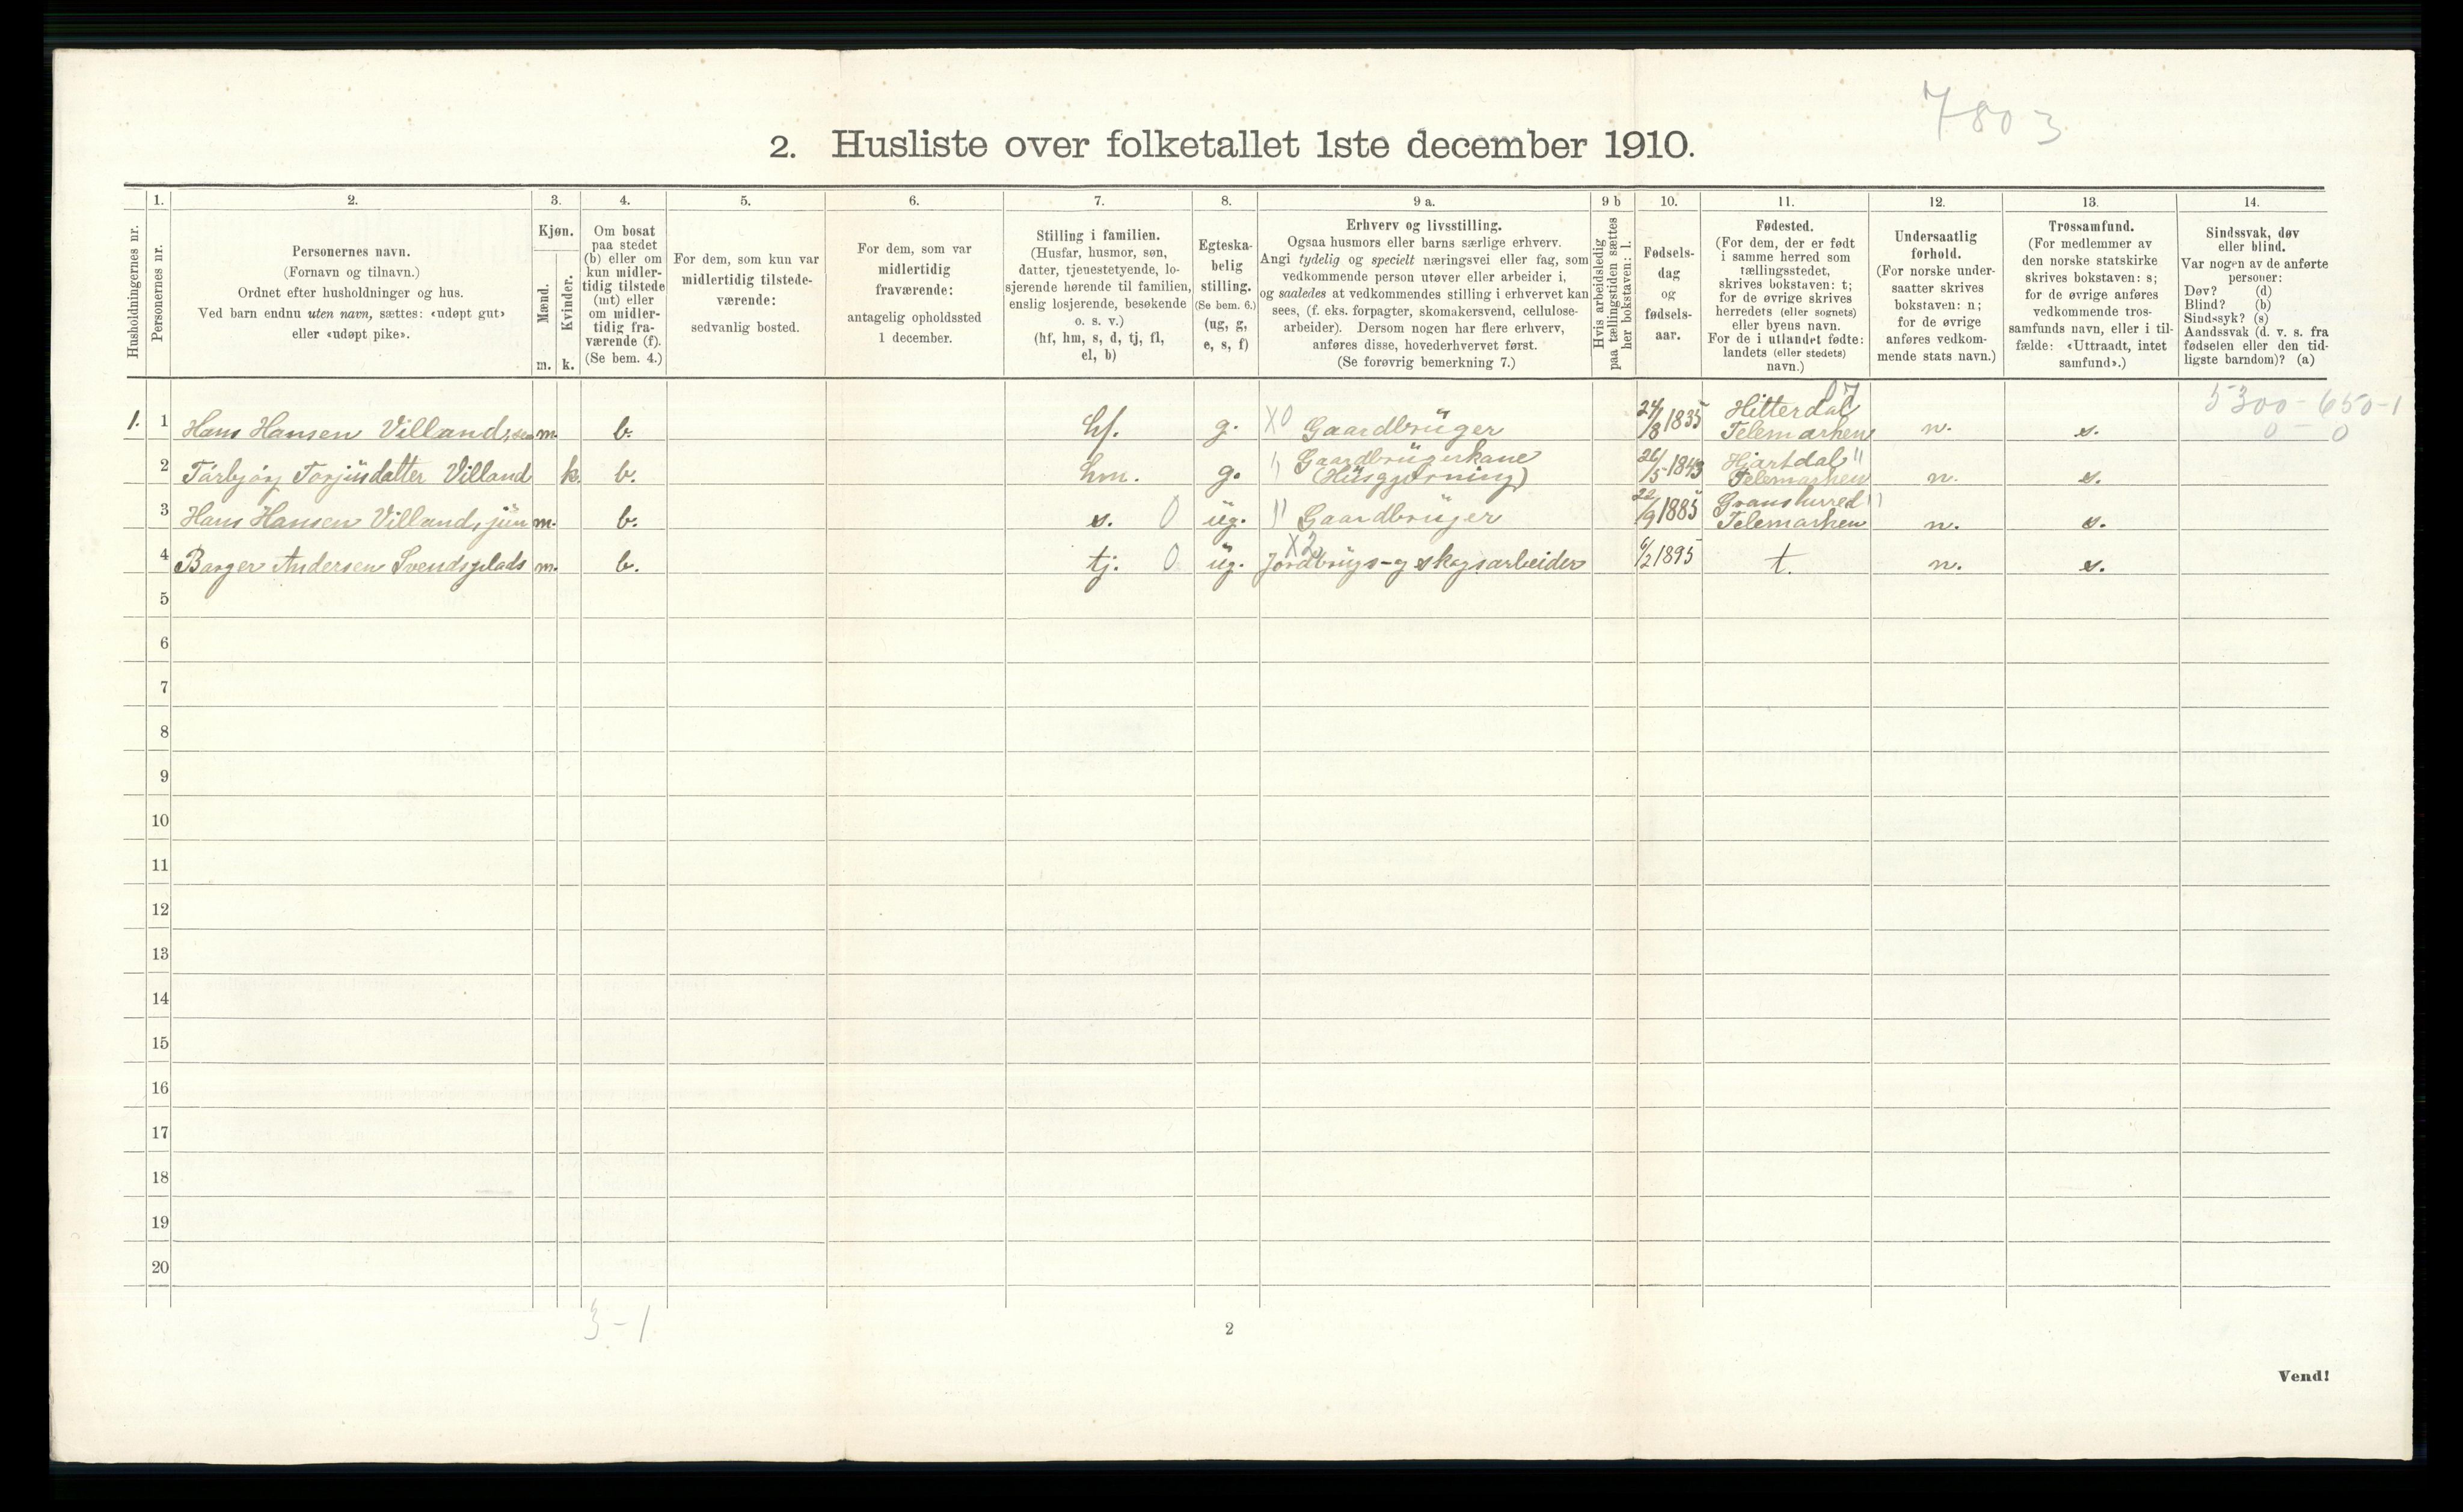 7803
2. Husliste over folketallet 1ste december 1910.
Husholdningernes nr.
1.
Personernes nr.
2.
Personernes navn.
(Fornavn og tilnavn.)
Ordnet efter husholdninger og hus.
Ved barn endnu uten navn, sættes: «udøpt gut»
eller «udøpt pike».
3.
Kjøn.
Mænd.
Kvinder.
m. k.
4.
Om bosat
paa stedet
(b) eller om
kun midler-
tidig tilstede
(mt) eller
om midler-
tidig fra-
værende (f).
(Se bem. 4.)
5.
For dem, som kun var
midlertidig tilstede-
værende:
sedvanlig bosted.
6.
For dem, som var
midlertidig
fraværende:
antagelig opholdssted
1 december.
7.
Stilling i familien.
(Husfar, husmor, søn,
datter, tjenestetyende, lo-
sjerende hørende til familien,
enslig losjerende, besøkende
o. s. v.)
(hf, hm, s, d, tj, fl,
el, b)
8.
Egteska-
belig
stilling.
(Se bem. 6.)
(ug, g,
e, s, f)
9 a.
Erhverv og livsstilling.
Ogsaa husmors eller barns særlige erhverv.
Angi tydelig og specielt næringsvei eller fag, som
vedkommende person utøver eller arbeider i,
og saaledes at vedkommendes stilling i erhvervet kan
sees, (f. eks. forpagter, skomakersvend, cellulose-
arbeider). Dersom nogen har flere erhverv,
anføres disse, hovederhvervet først.
(Se forøvrig bemerkning 7.)
9 b
Hvis arbeidsledig
paa tællingstiden sættes
her bokstaven: l.
10.
Fødsels-
dag
og
fødsels-
aar.
11.
Fødested.
(For dem, der er født
i samme herred som
tællingsstedet,
skrives bokstaven: t;
for de øvrige skrives
herredets (eller sognets)
eller byens navn.
For de i utlandet fødte:
landets (eller stedets)
navn.)
12.
Undersaatlig
forhold.
(For norske under-
saatter skrives
bokstaven: n;
for de øvrige
anføres vedkom-
mende stats navn.)
13.
Trossamfund.
(For medlemmer av
den norske statskirke
skrives bokstaven: s;
for de øvrige anføres
vedkommende tros-
samfunds navn, eller i til-
fælde: «Uttraadt, intet
samfund».)
14.
Sindssvak, døv
eller blind.
Var nogen av de anførte
personer:
Døv? (d)
Blind? (b)
Sindssyk? (s)
Aandssvak (d. v. s. fra
fødselen eller den tid-
ligste barndom)? (a)
07 5300-650-1
1. 1 Hans Hansen Villand, sen m. b. hf. g. X0 Gaardbrüger 24/8 1835 Hitterdal Telemarken n. s. 0 - 0
2 Tarbjørg Torjüsdatter Villand k. b. hm. g. " Gaardbrügerkane (Hüsgjerning) 26/5 1843 Hjartdal " Telemarken n. s.
3 Hans Hansen Villand, jün m. b. s. 0 üg. " Gaardbrüger 22/9 1885 Gransherred " Telemarken n. s.
4 Barger Andersen Svendsplads m. b. tj. 0 üg. X2 Jordbrügs- og skogsarbeider 6/2 1895 t. n. s.
5
6
7
8
9
10
11
12
13
14
15
16
17
18
19
20
3-1
2
Vend!